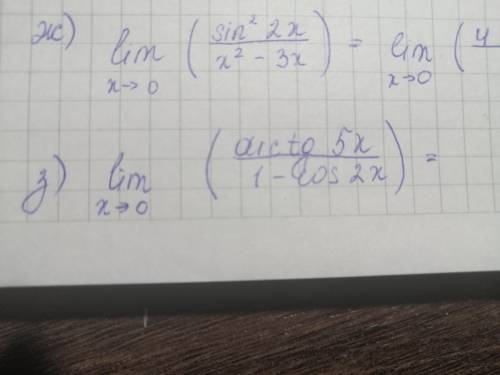 ж) lim x→0 ( sin² 2x / x² - 3x ) = lim x→0 ( 4
з) lim x→0 ( arctg 5x / 1 - cos 2x ) =